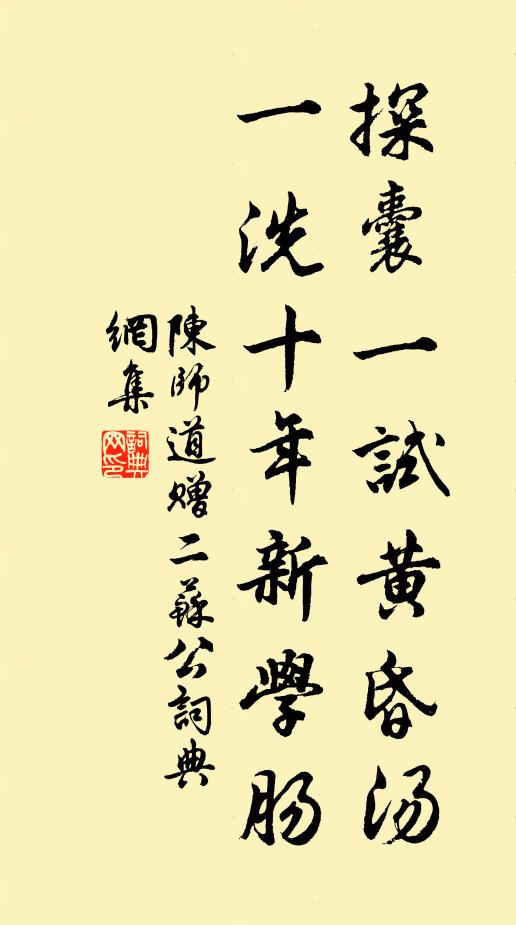 探囊一試黄昏汤
一洗十年新學肠
陳師道贈二蘇公詞典
網集
詞典
网印